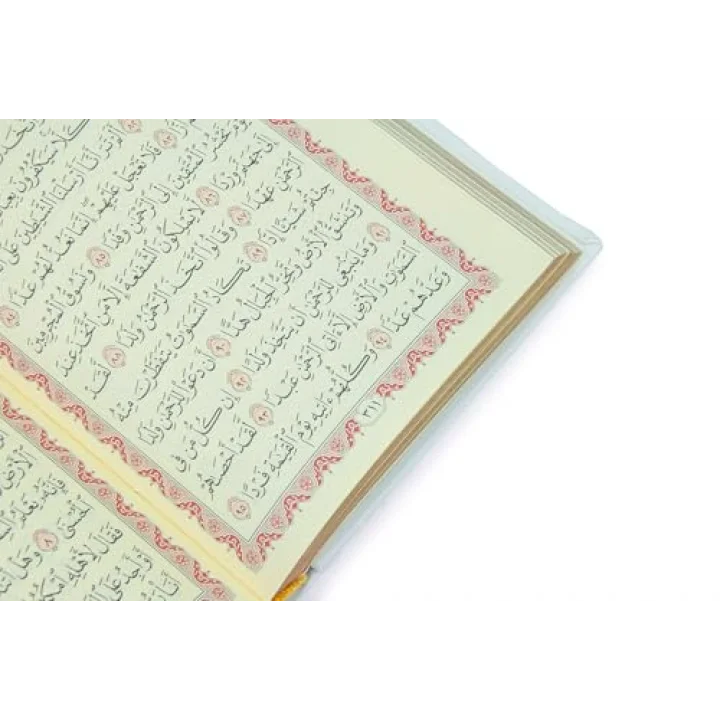 كَلَّا سَيَكْفُرُونَ
أَلَمْ تَرَ أَنَّا أَرْسَلْنَا ٱلشَّيَٰطِينَ عَلَى
أَزًّا ٨٣ فَلَا تَعْجَلْ عَلَيْهِمْ إِنَّمَا نَعُدُّ لَهُمْ عَدًّا
٨٤ يَوْمَ نَحْشُرُ ٱلْمُتَّقِينَ إِلَى ٱلرَّحْمَٰنِ وَفْدًا ٨٥ وَنَسُوقُ ٱلْمُجْرِمِينَ
إِلَىٰ جَهَنَّمَ وِرْدًا ٨٦ لَّا يَمْلِكُونَ ٱلشَّفَٰعَةَ إِلَّا مَنِ ٱتَّخَذَ عِندَ
ٱلرَّحْمَٰنِ عَهْدًا ٨٧ وَقَالُوا۟ ٱتَّخَذَ ٱلرَّحْمَٰنُ وَلَدًا ٨٨ لَّقَدْ
جِئْتُمْ شَيْـًٔا إِدًّا ٨٩ تَكَادُ ٱلسَّمَٰوَٰتُ يَتَفَطَّرْنَ مِنْهُ
وَتَنشَقُّ ٱلْأَرْضُ وَتَخِرُّ ٱلْجِبَالُ هَدًّا ٩٠ أَن دَعَوْا۟ لِلرَّحْمَٰنِ وَلَدًا
٩١ وَمَا يَنۢبَغِى لِلرَّحْمَٰنِ أَن يَتَّخِذَ وَلَدًا ٩٢ إِن كُلُّ مَن فِى
ٱلسَّمَٰوَٰتِ وَٱلْأَرْضِ إِلَّآ ءَاتِى ٱلرَّحْمَٰنِ عَبْدًا ٩٣ لَّقَدْ أَحْصَىٰهُمْ
وَعَدَّهُمْ عَدًّا ٩٤ وَكُلُّهُمْ ءَاتِيهِ يَوْمَ ٱلْقِيَٰمَةِ فَرْدًا ٩٥
٣١١
ٱلْأَرْضَ
فَإِنَّهُۥ يَعْلَمُ
ٱلْحُسْنَىٰ ٨ وَهَلْ
فَقَالَ لِأَهْلِهِ ٱمْكُثُوٓا۟